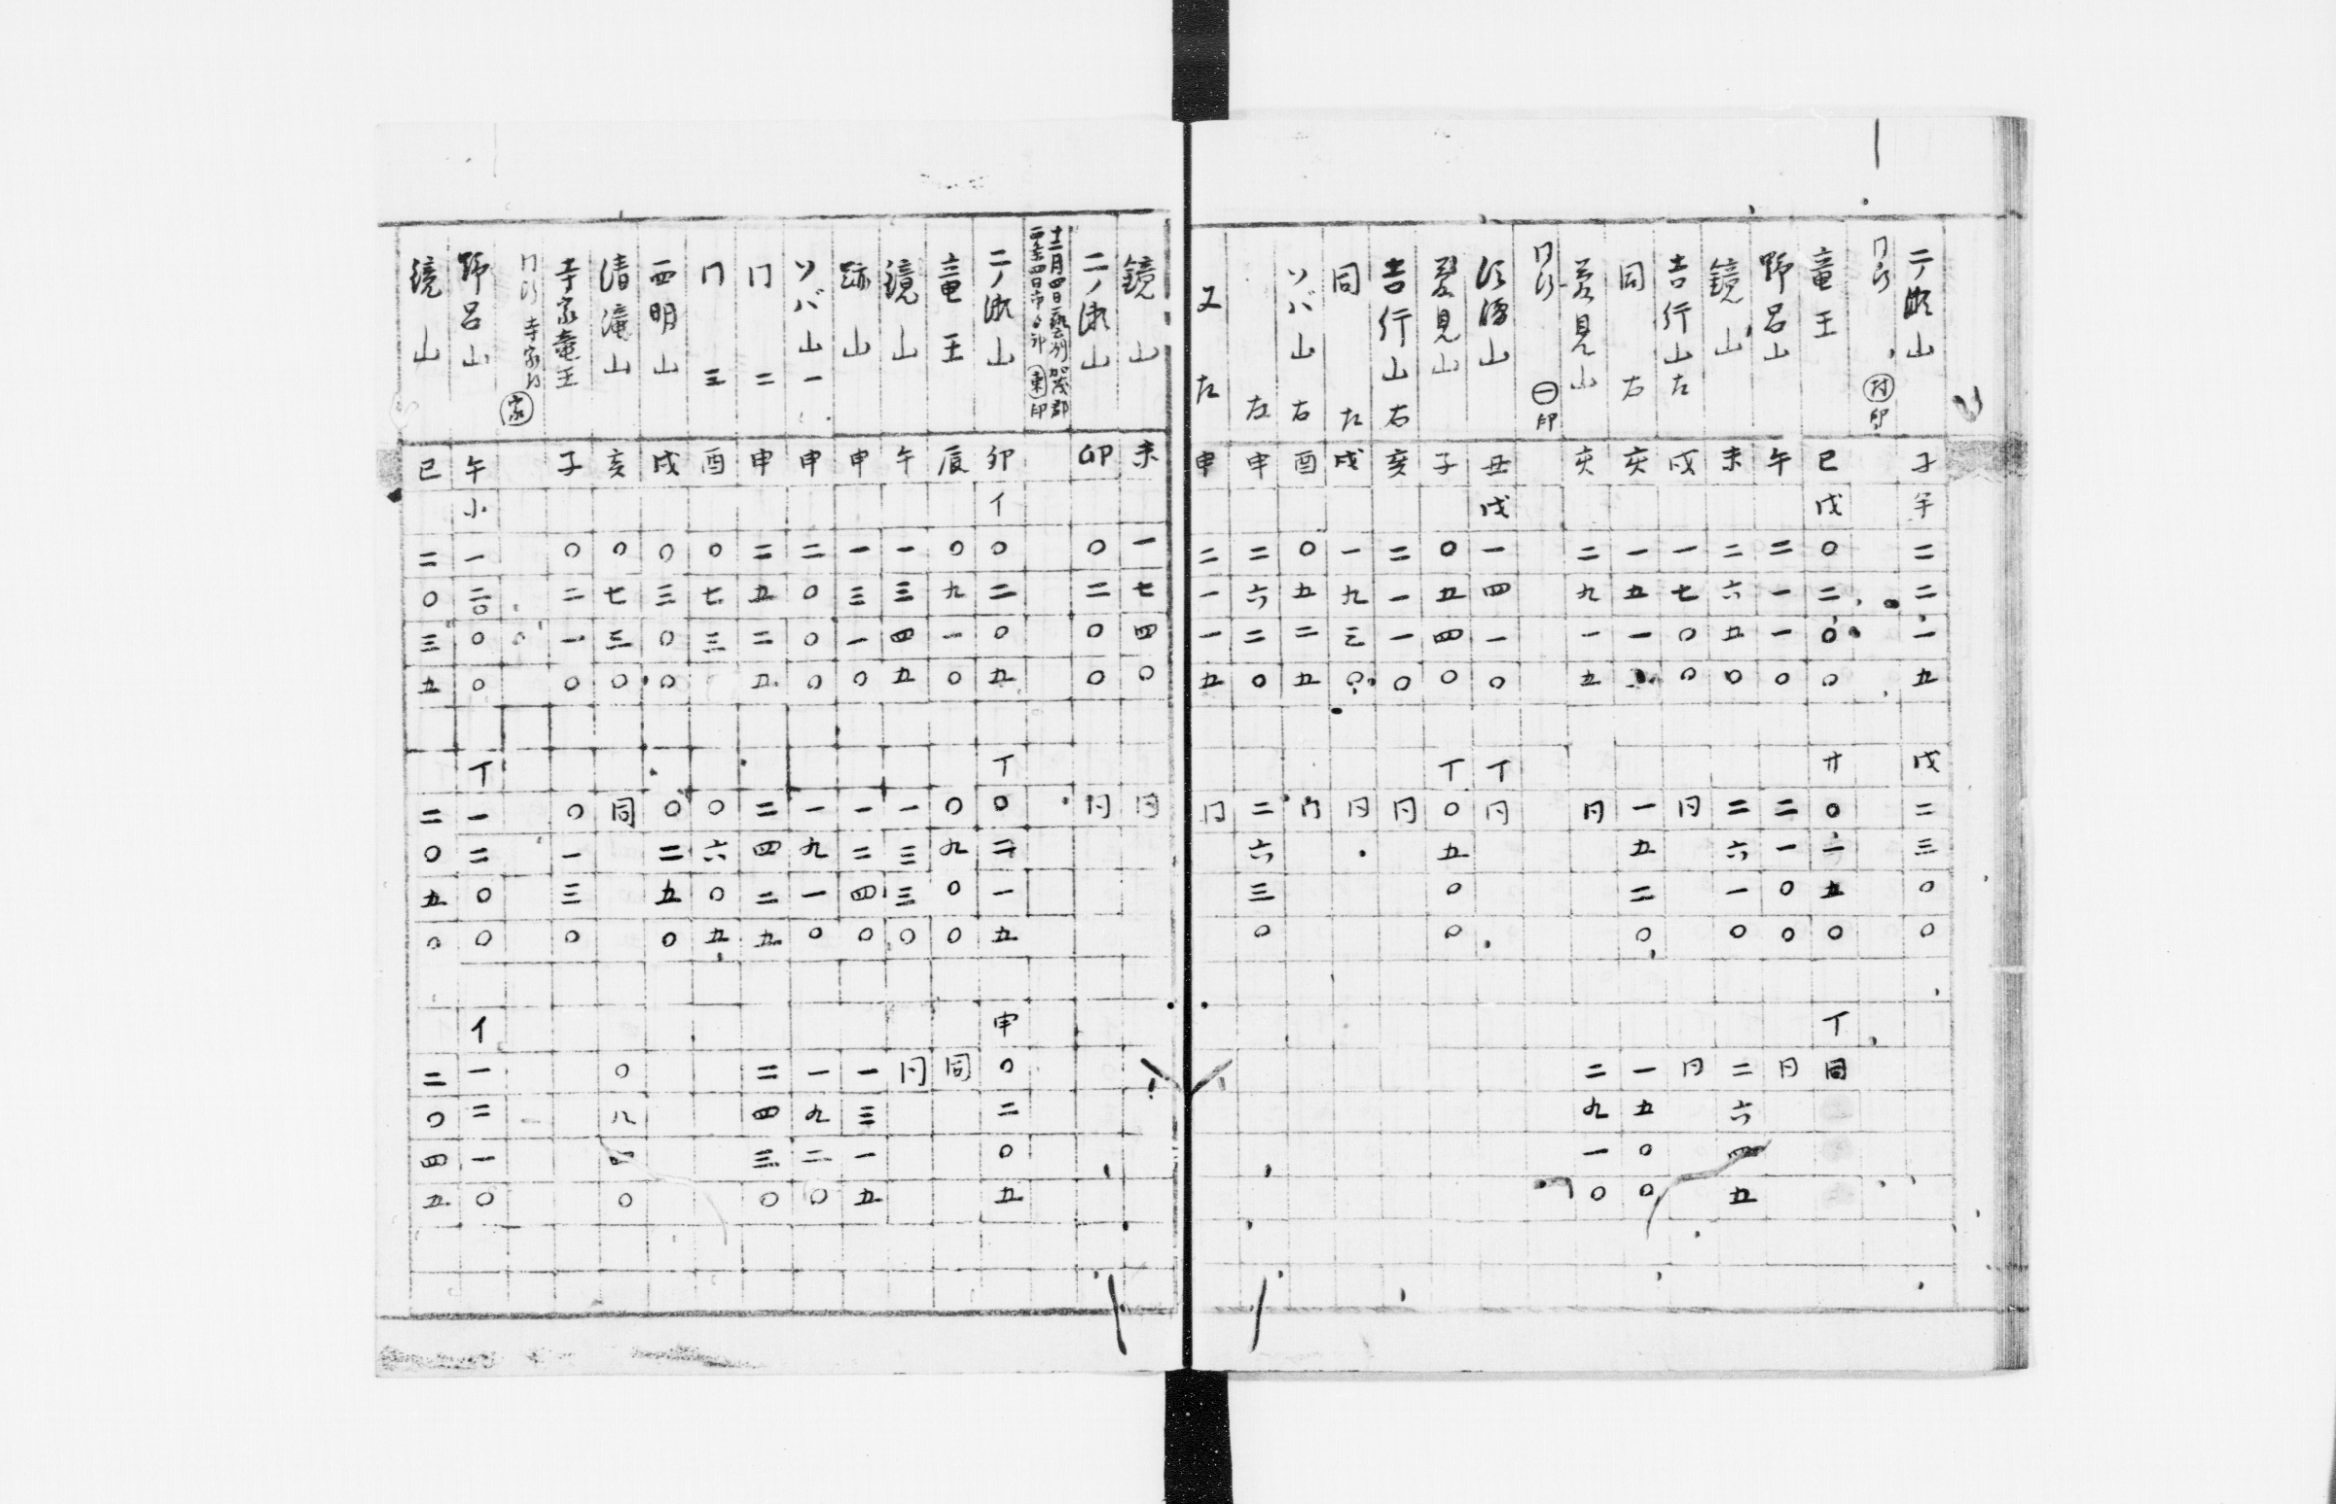 二ノ瀬山 子 半 二二一五 戌 二三〇〇
村 印
竜王 巳 戌 〇二〇〇 サ 〇一五〇 イ 同
野呂山 午 二一一〇 二一〇〇 同
鏡山 未 二六五〇 二六一〇 二六四五
吉行山 左 戌 一七〇〇 同 同
同 右 亥 一五一 一五二〇 一五〇〇
見山 亥 二九一五 同 二九一〇
一 印
山 丑 戌 一四一〇 イ 同
見山 子 〇五四〇 イ 〇五〇〇
吉行山 右 亥 二一一〇 同
同 左 戌 一九三〇 同
ソバ山 右 酉 〇五二五 同
左 申 二六二〇 二六三〇
又 左 申 二一一五 同
鏡山 未 一七四〇 同
二ノ瀬山 卯 〇二〇〇 同
十二月四日藝州加茂郡
西 四日市 東 印
二ノ瀬山 卯 イ 〇二〇五 イ 〇二一五 申 〇二〇五
竜王 辰 〇九一〇 〇九〇〇 同
鏡山 午 一三四五 一三三〇 同
跡山 申 一三一〇 一二四〇 一三一五
ソバ山 一 申 二〇〇〇 一九一〇 一九二〇
同 二 申 二五二五 二四二五 二四三〇
同 三 酉 〇七三 〇六〇五
西明山 戌 〇三〇〇 〇二五〇
清滝山 亥 〇七三〇 同 〇八 〇
寺家竜王 子 〇二一〇 〇一三〇
寺家 家
野呂山 午 小 一二〇〇〇 イ 一二〇〇 イ 一二一〇
鏡山 巳 二〇三五 二〇五〇 二〇四五